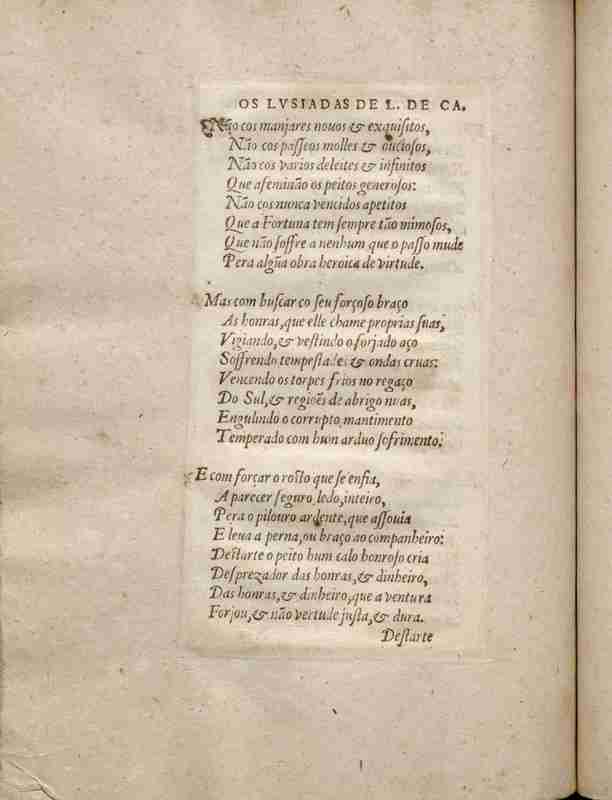 OS LVSIADAS DE L. DE CA.
Não cos manjares nouos & exquisitos,
Não cos passeos molles & ouciosos,
Não cos varios deleites & infinitos
Que afeminão os peitos generosos:
Não cos nunca vencidos apetitos
Que a Fortuna tem sempre tão mimosos,
Que não soffre a nenhum que o passo mude
Pera algũa obra heroica de virtude.
Mas com buscar co seu forçoso braço
As honras, que elle chame proprias suas,
Vigiando, & vestindo o forjado aço
Soffrendo tempestades & ondas cruas:
Vencendo os torpes frios no regaço
Do Sul, & regiões de abrigo nuas,
Engulindo o corrupto mantimento
Temperado com hum arduo sofrimento.
E com forçar o rosto que se enfia,
A parecer seguro, ledo, inteiro,
Pera o pilouro ardente, que assouia
E leua a perna, ou braço ao companheiro:
Destarte o peito hum calo honroso cria
Desprezador das honras, & dinheiro,
Das honras, & dinheiro, que a ventura
Forjou, & não vertude justa, & dura.
Destarte